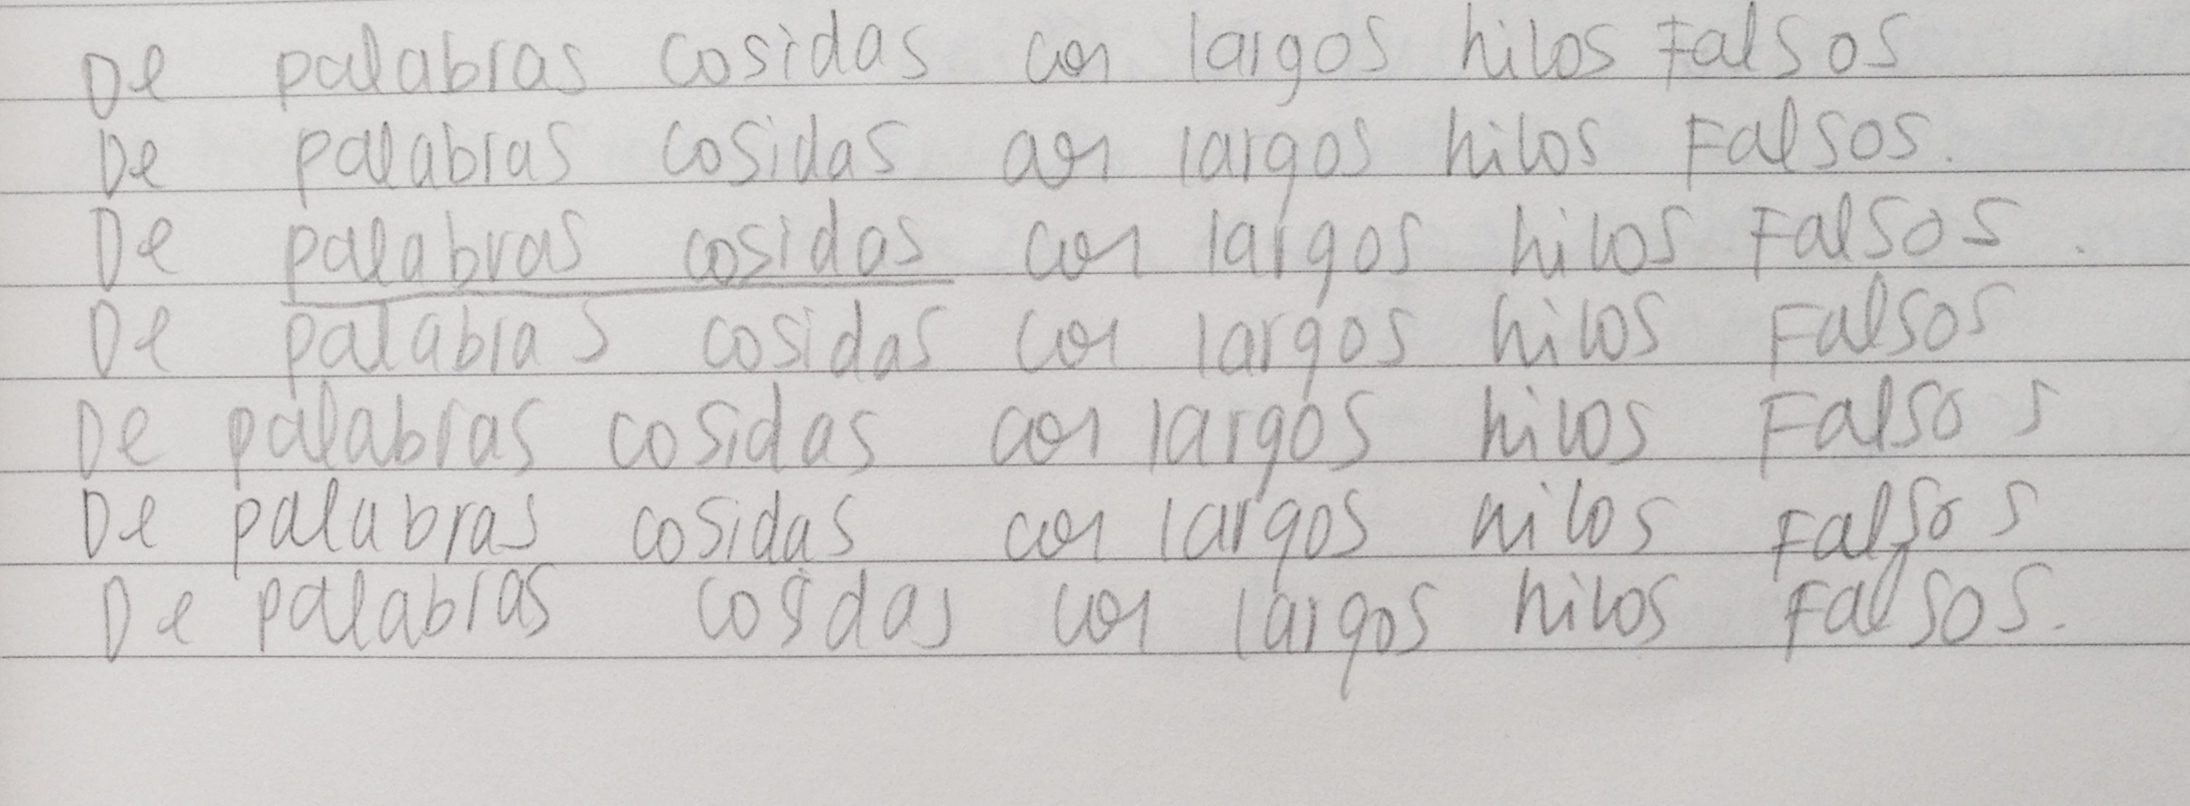 De palabras cosidas con largos hilos Falsos
De palabras cosidas con largos hilos Falsos.
De palabras cosidas con largos hilos Falsos.
De palabras cosidas con largos hilos Falsos
De palabras cosidas con largos hilos Falsos
De palabras cosidas con largos hilos Falsos
De palabras cosidas con largos hilos Falsos.